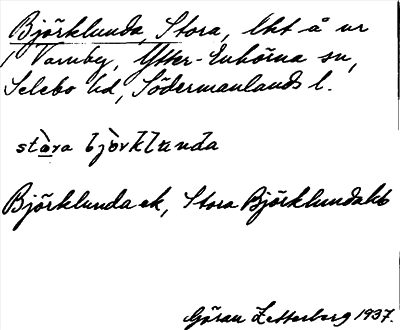 Björklunda, Stora, lht å nr
1 Vamby, Ytter-Enhörna sn,
Selebo hd, Södermanlands l.
stòra bjòrklunda
Björklunda ek, Stora Björklundahb
Göran Zetterberg 1937.